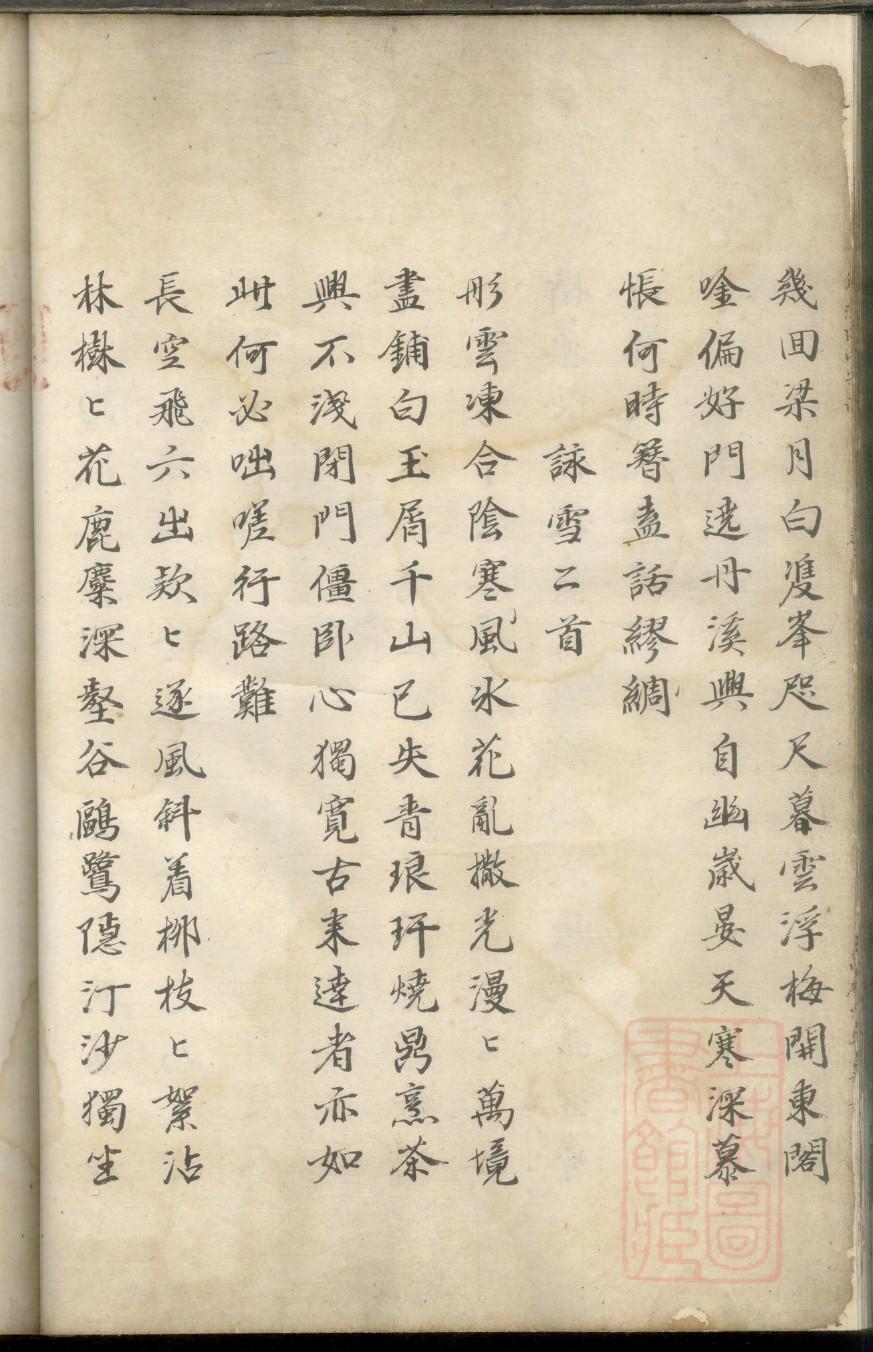 幾回梁月白雙峯咫尺暮雲浮梅開東閣
唫偏好門遶丹溪興自幽歲晏天寒深慕
悵何時簪盍話繆綢
詠雪二首
彤雲凍合陰寒風氷花亂撒光漫〻萬境
盡鋪白玉屑千山已失青琅玕燒鼎烹茶
興不淺閉門僵臥心獨寬古來達者亦如
此何必咄嗟行路難
長空飛六出欵〻逐風斜着栁枝〻絮沾
林樹〻花鹿麋深壑谷鷗鷺隱汀沙獨坐
上海圖書館藏